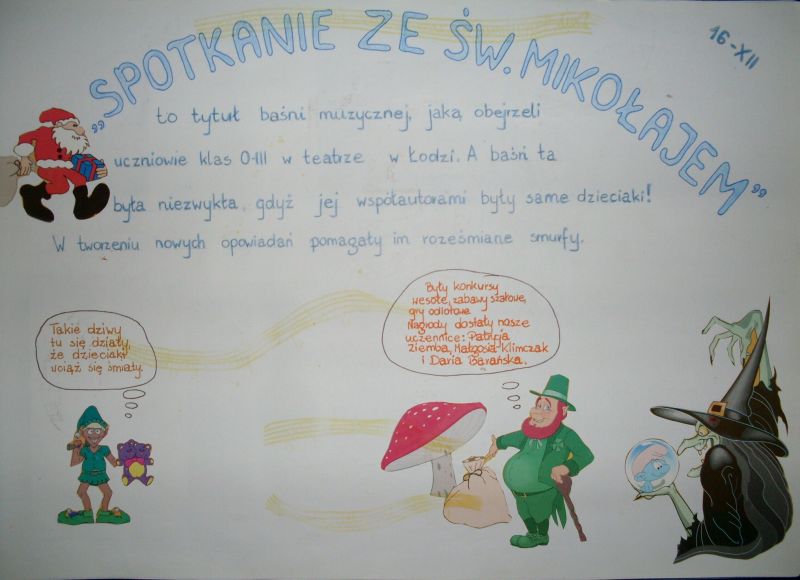 „SPOTKANIE ZE ŚW. MIKOŁAJEM”
16-XII
to tytuł baśni muzycznej, jaką obejrzeli
uczniowie klas O-III w teatrze w Łodzi. A baśń ta
była niezwykła, gdyż jej współautorami były same dzieciaki!
W tworzeniu nowych opowiadań pomagały im roześmiane smurfy.
Takie dziwy
tu się działy,
że dzieciaki
wciąż się śmiały.
Były konkursy
wesołe, zabawy szałowe,
gry odlotowe
Nagrody dostały nasze
uczennice: Patrycja
Ziemba, Małgosia Klimczak
i Daria Barańska.